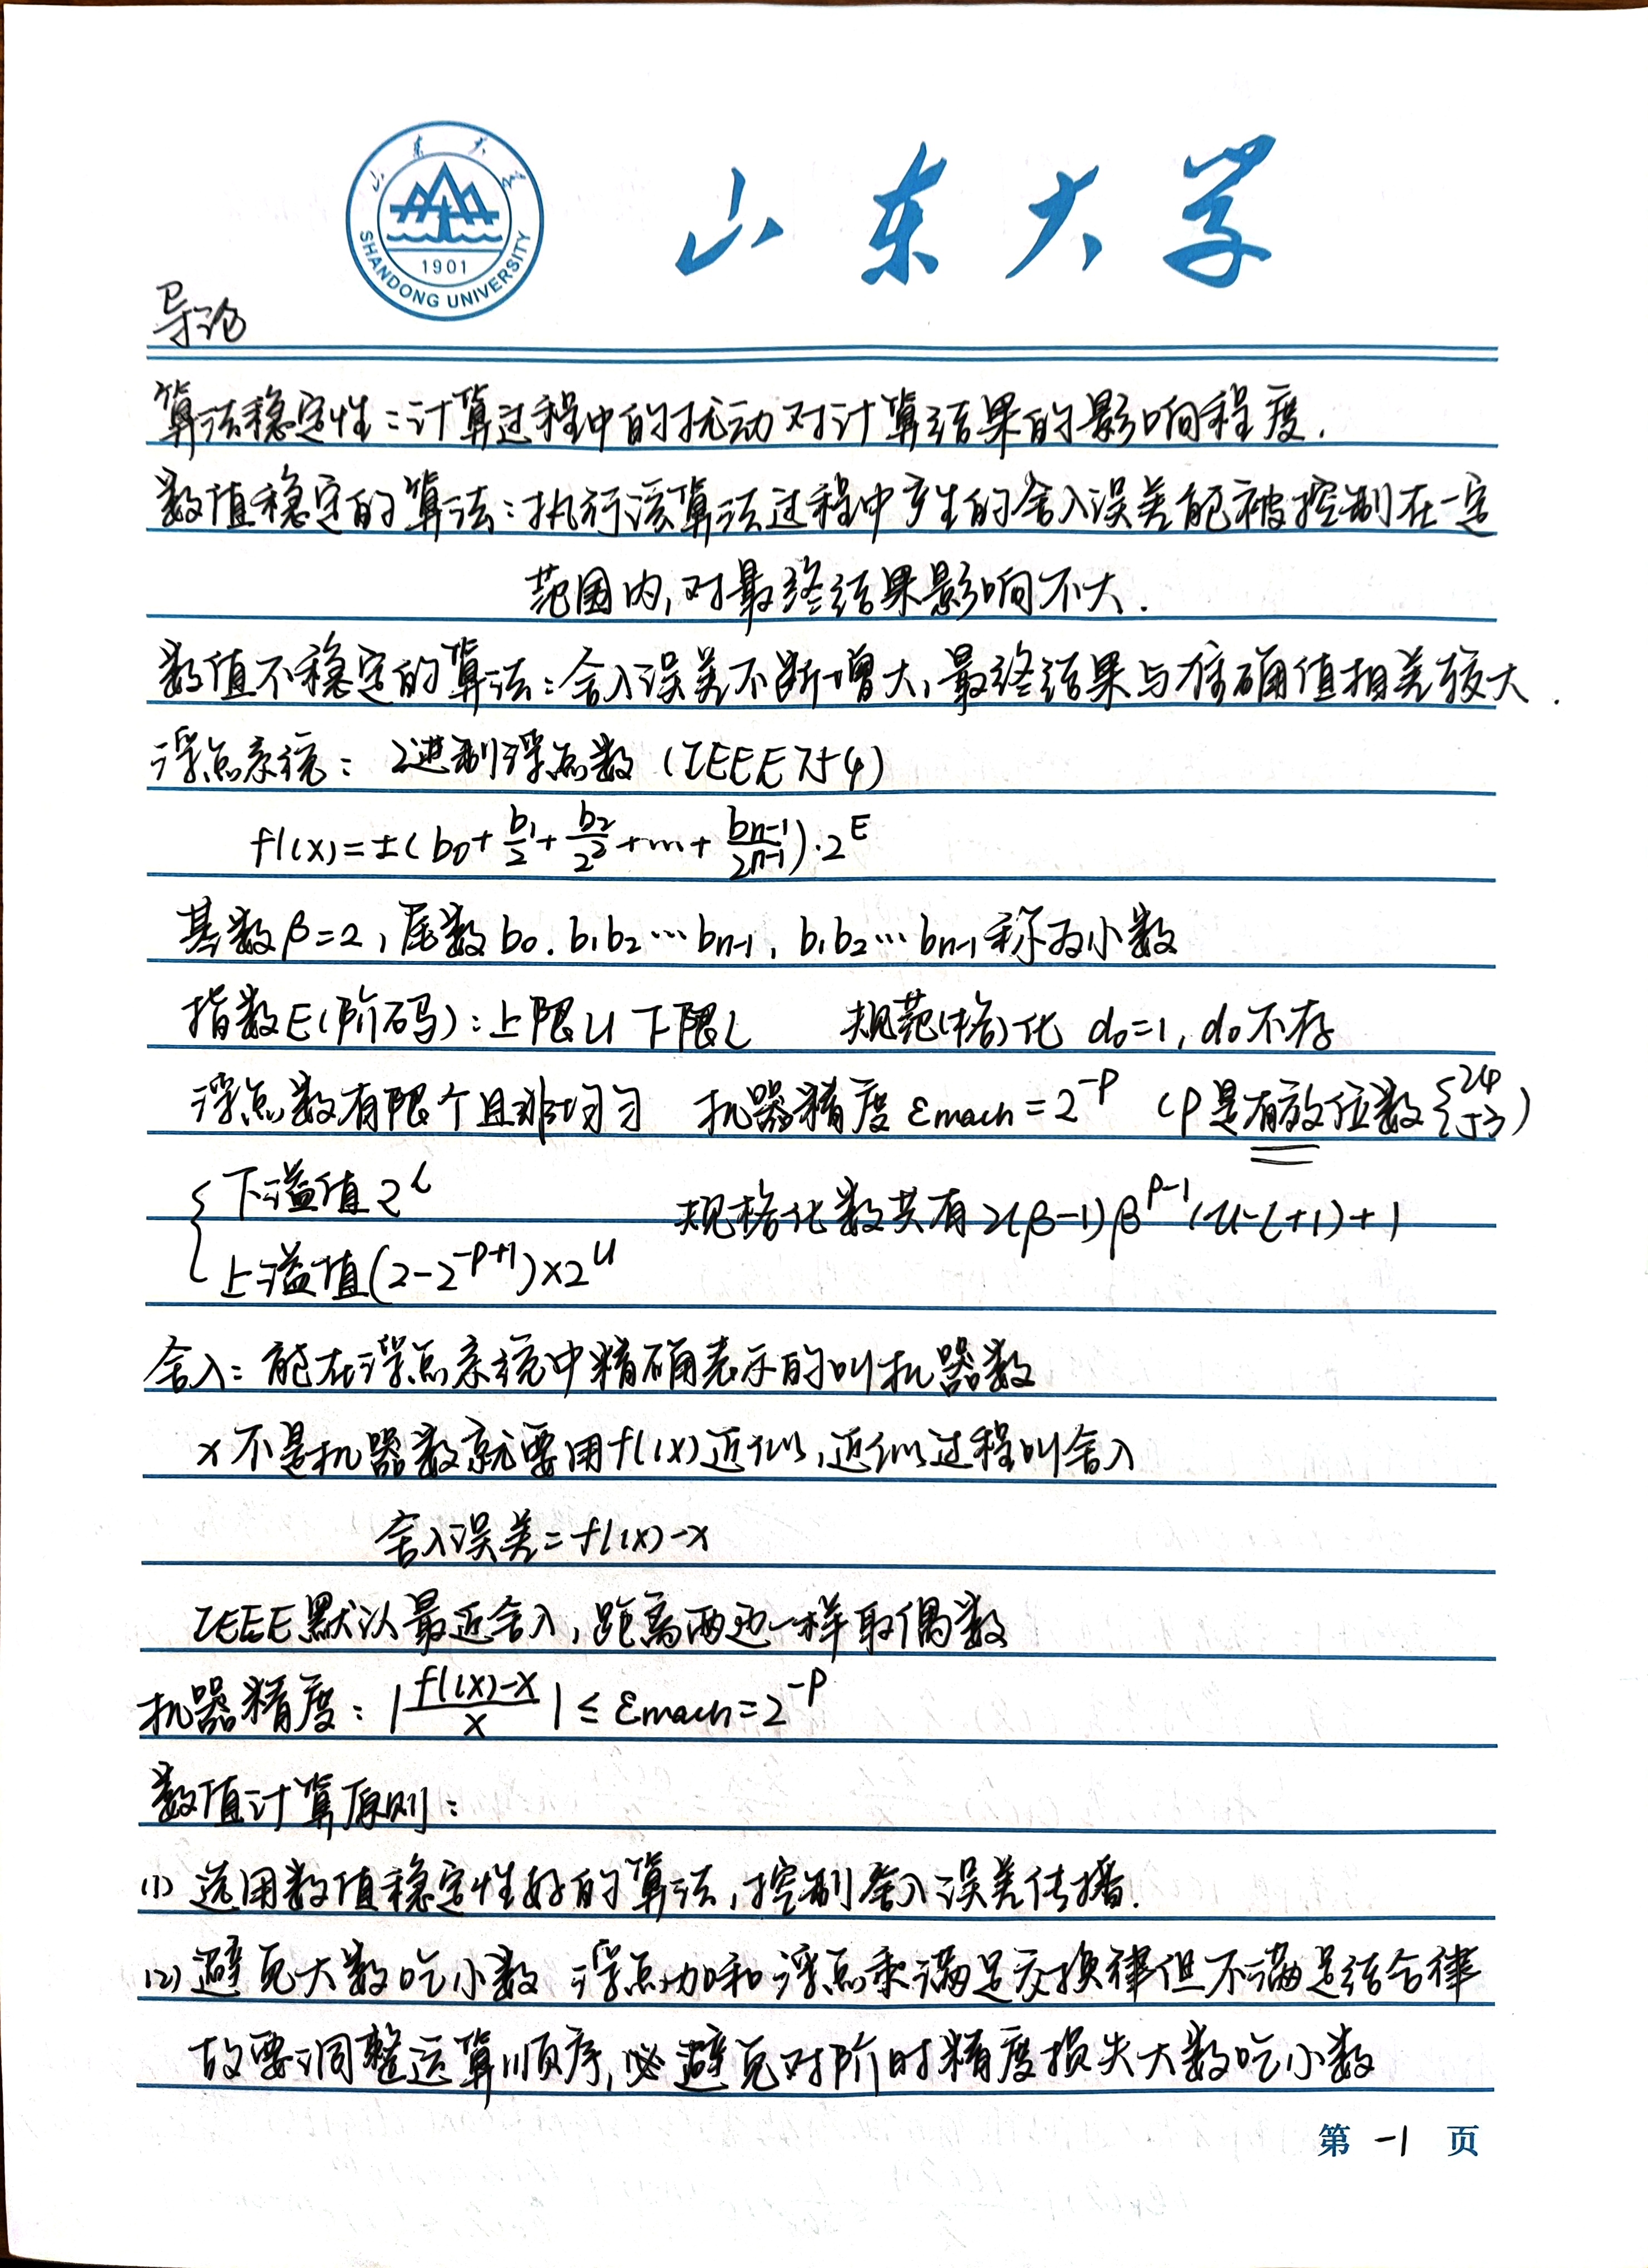 山东大学
SHANDONG UNIVERSITY
1901
山东大学
导论
算法稳定性：计算过程中的扰动对计算结果的影响程度.
数值稳定的算法：执行该算法过程中产生的舍入误差能被控制在一定
范围内,对最终结果影响不大.
数值不稳定的算法：舍入误差不断增大,最终结果与准确值相差较大.
浮点系统： 2进制浮点数 (IEEE754)
fl(x)=±(b₀+b₁/2+b₂/2²+…+bₙ₋₁/2ⁿ⁻¹)·2^E
基数β=2,尾数b₀.b₁b₂…bₙ₋₁, b₁b₂…bₙ₋₁称为小数
指数E(阶码)：上限U 下限L 规范(格)化 d₀=1, d₀不存
浮点数有限个且非均匀 机器精度 εmach=2^-p (p是有效位数{24 53)
{下溢值2^L 规格化数共有2(β-1)β^p-1(U-L+1)+1
上溢值(2-2^-p+1)×2^U
舍入：能在浮点系统中精确表示的叫机器数
x不是机器数就要用fl(x)近似,近似过程叫舍入
舍入误差=fl(x)-x
IEEE默认最近舍入,距离两边一样取偶数
机器精度：|(fl(x)-x)/x|≤εmach=2^-p
数值计算原则：
(1) 选用数值稳定性好的算法,控制舍入误差传播.
(2) 避免大数吃小数 浮点加和浮点乘满足交换律但不满足结合律
故要调整运算顺序,避免对阶时精度损失大数吃小数
第 -1 页